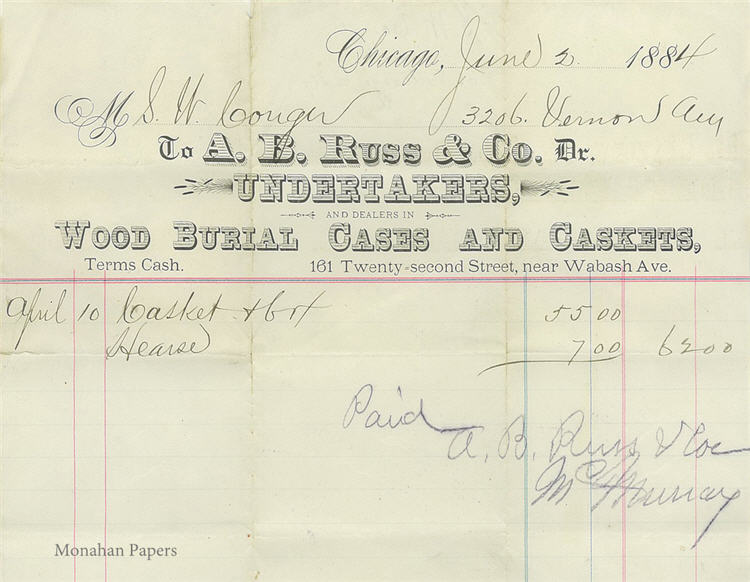 Chicago, June 2 1884
M S. W. Conger 3206. Vernon Ave
To A. B. Russ & Co. Dr.
UNDERTAKERS,
AND DEALERS IN
WOOD BURIAL CASES AND CASKETS,
Terms Cash. 161 Twenty-second Street, near Wabash Ave.
April 10 Casket & box 55 00
Hearse 7 00 62 00
Paid
A. B. Russ & Co
McMurray
Monahan Papers